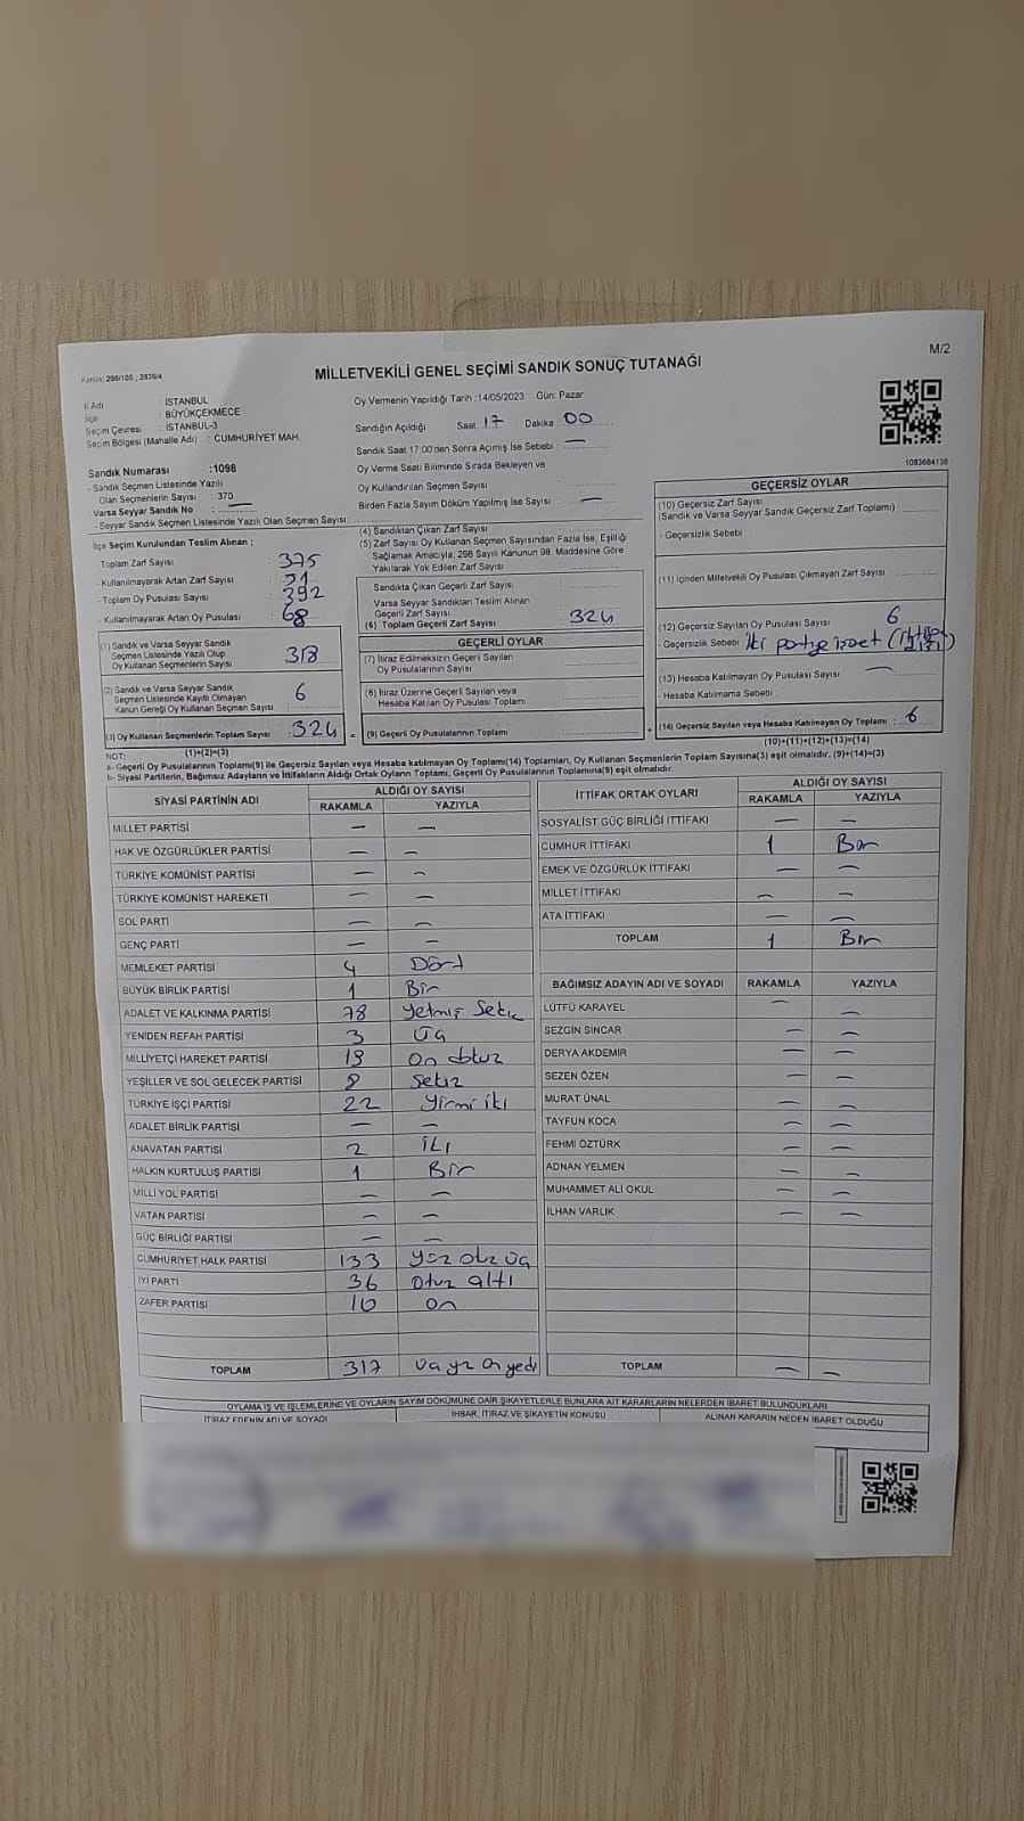 M/2
MİLLETVEKİLİ GENEL SEÇİMİ SANDIK SONUÇ TUTANAĞI
İl Adı : İSTANBUL
İlçe : BÜYÜKÇEKMECE
Seçim Çevresi : İSTANBUL-3
Seçim Bölgesi (Mahalle Adı) : CUMHURİYET MAH.
Oy Vermenin Yapıldığı Tarih :14/05/2023 Gün: Pazar
Sandığın Açıldığı Saat 17 Dakika 00
Sandık Saat 17:00'den Sonra Açımış İse Sebebi —
Oy Verme Saati Bitiminde Sırada Bekleyen ve
Oy Kullandırılan Seçmen Sayısı
Birden Fazla Sayım Döküm Yapılmış İse Sayısı —
1083684138
Sandık Numarası :1098
- Sandık Seçmen Listesinde Yazılı
Olan Seçmenlerin Sayısı : 370
Varsa Seyyar Sandık No : —
- Seyyar Sandık Seçmen Listesinde Yazılı Olan Seçmen Sayısı
İlçe Seçim Kurulundan Teslim Alınan :
Toplam Zarf Sayısı : 375
- Kullanılmayarak Artan Zarf Sayısı : 51
- Toplam Oy Pusulası Sayısı : 392
- Kullanılmayarak Artan Oy Pusulası : 68
(1) Sandık ve Varsa Seyyar Sandık
Seçmen Listesinde Yazılı Olup
Oy Kullanan Seçmenlerin Sayısı : 318
(2) Sandık ve Varsa Seyyar Sandık
Seçmen Listesinde Kayıtlı Olmayan
Kanun Gereği Oy Kullanan Seçmen Sayısı : 6
(3) Oy Kullanan Seçmenlerin Toplam Sayısı : 324
(4) Sandıktan Çıkan Zarf Sayısı
(5) Zarf Sayısı Oy Kullanan Seçmen Sayısından Fazla İse, Eşitliği
Sağlamak Amacıyla, 298 Sayılı Kanunun 98. Maddesine Göre
Yakılarak Yok Edilen Zarf Sayısı
Sandıkta Çıkan Geçerli Zarf Sayısı
Varsa Seyyar Sandıktan Teslim Alınan
Geçerli Zarf Sayısı
(6) Toplam Geçerli Zarf Sayısı 324
GEÇERLİ OYLAR
(7) İtiraz Edilmeksizin Geçerli Sayılan
Oy Pusulalarının Sayısı
(8) İtiraz Üzerine Geçerli Sayılan veya
Hesaba Katılan Oy Pusulası Toplamı
= (9) Geçerli Oy Pusulalarının Toplamı
GEÇERSİZ OYLAR
(10) Geçersiz Zarf Sayısı
(Sandık ve Varsa Seyyar Sandık Geçersiz Zarf Toplamı)
- Geçersizlik Sebebi
(11) İçinden Milletvekili Oy Pusulası Çıkmayan Zarf Sayısı
(12) Geçersiz Sayılan Oy Pusulası Sayısı 6
- Geçersizlik Sebebi İki partiye
(13) Hesaba Katılmayan Oy Pusulası Sayısı —
- Hesaba Katılmama Sebebi
+ (14) Geçersiz Sayılan veya Hesaba Katılmayan Oy Toplamı : 6
NOT: (1)+(2)=(3)
(10)+(11)+(12)+(13)=(14)
a- Geçerli Oy Pusulalarının Toplamı(9) ile Geçersiz Sayılan veya Hesaba katılmayan Oy Toplamı(14) Toplamları, Oy Kullanan Seçmenlerin Toplam Sayısına(3) eşit olmalıdır. (9)+(14)=(3)
b- Siyasi Partilerin, Bağımsız Adayların ve İttifakların Aldığı Ortak Oyların Toplamı, Geçerli Oy Pusulalarının Toplamına(9) eşit olmalıdır.
SİYASİ PARTİNİN ADI ALDIĞI OY SAYISI
RAKAMLA YAZIYLA
MİLLET PARTİSİ — —
HAK VE ÖZGÜRLÜKLER PARTİSİ — —
TÜRKİYE KOMÜNİST PARTİSİ — —
TÜRKİYE KOMÜNİST HAREKETİ — —
SOL PARTİ — —
GENÇ PARTİ — —
MEMLEKET PARTİSİ 4 Dört
BÜYÜK BİRLİK PARTİSİ 1 Bir
ADALET VE KALKINMA PARTİSİ 78 Yetmiş Sekiz
YENİDEN REFAH PARTİSİ 3 Üç
MİLLİYETÇİ HAREKET PARTİSİ 19 On dokuz
YEŞİLLER VE SOL GELECEK PARTİSİ 8 Sekiz
TÜRKİYE İŞÇİ PARTİSİ 22 Yirmi iki
ADALET BİRLİK PARTİSİ — —
ANAVATAN PARTİSİ 2 İki
HALKIN KURTULUŞ PARTİSİ 1 Bir
MİLLİ YOL PARTİSİ — —
VATAN PARTİSİ — —
GÜÇ BİRLİĞİ PARTİSİ — —
CUMHURİYET HALK PARTİSİ 133 Yüz otuz üç
İYİ PARTİ 36 Otuz altı
ZAFER PARTİSİ 10 On
TOPLAM 317 Üç yüz on yedi
İTTİFAK ORTAK OYLARI ALDIĞI OY SAYISI
RAKAMLA YAZIYLA
SOSYALİST GÜÇ BİRLİĞİ İTTİFAKI — —
CUMHUR İTTİFAKI 1 Bir
EMEK VE ÖZGÜRLÜK İTTİFAKI — —
MİLLET İTTİFAKI — —
ATA İTTİFAKI — —
TOPLAM 1 Bir
BAĞIMSIZ ADAYIN ADI VE SOYADI RAKAMLA YAZIYLA
LÜTFÜ KARAYEL — —
SEZGİN SİNCAR — —
DERYA AKDEMİR — —
SEZEN ÖZEN — —
MURAT ÜNAL — —
TAYFUN KOCA — —
FEHMİ ÖZTÜRK — —
ADNAN YELMEN — —
MUHAMMET ALİ OKUL — —
İLHAN VARLIK — —
TOPLAM — —
OYLAMA İŞ VE İŞLEMLERİNE VE OYLARIN SAYIM DÖKÜMÜNE DAİR ŞİKAYETLERLE BUNLARA AİT KARARLARIN NELERDEN İBARET BULUNDUKLARI
İTİRAZ EDENİN ADI VE SOYADI İHBAR, İTİRAZ VE ŞİKAYETİN KONUSU ALINAN KARARIN NEDEN İBARET OLDUĞU